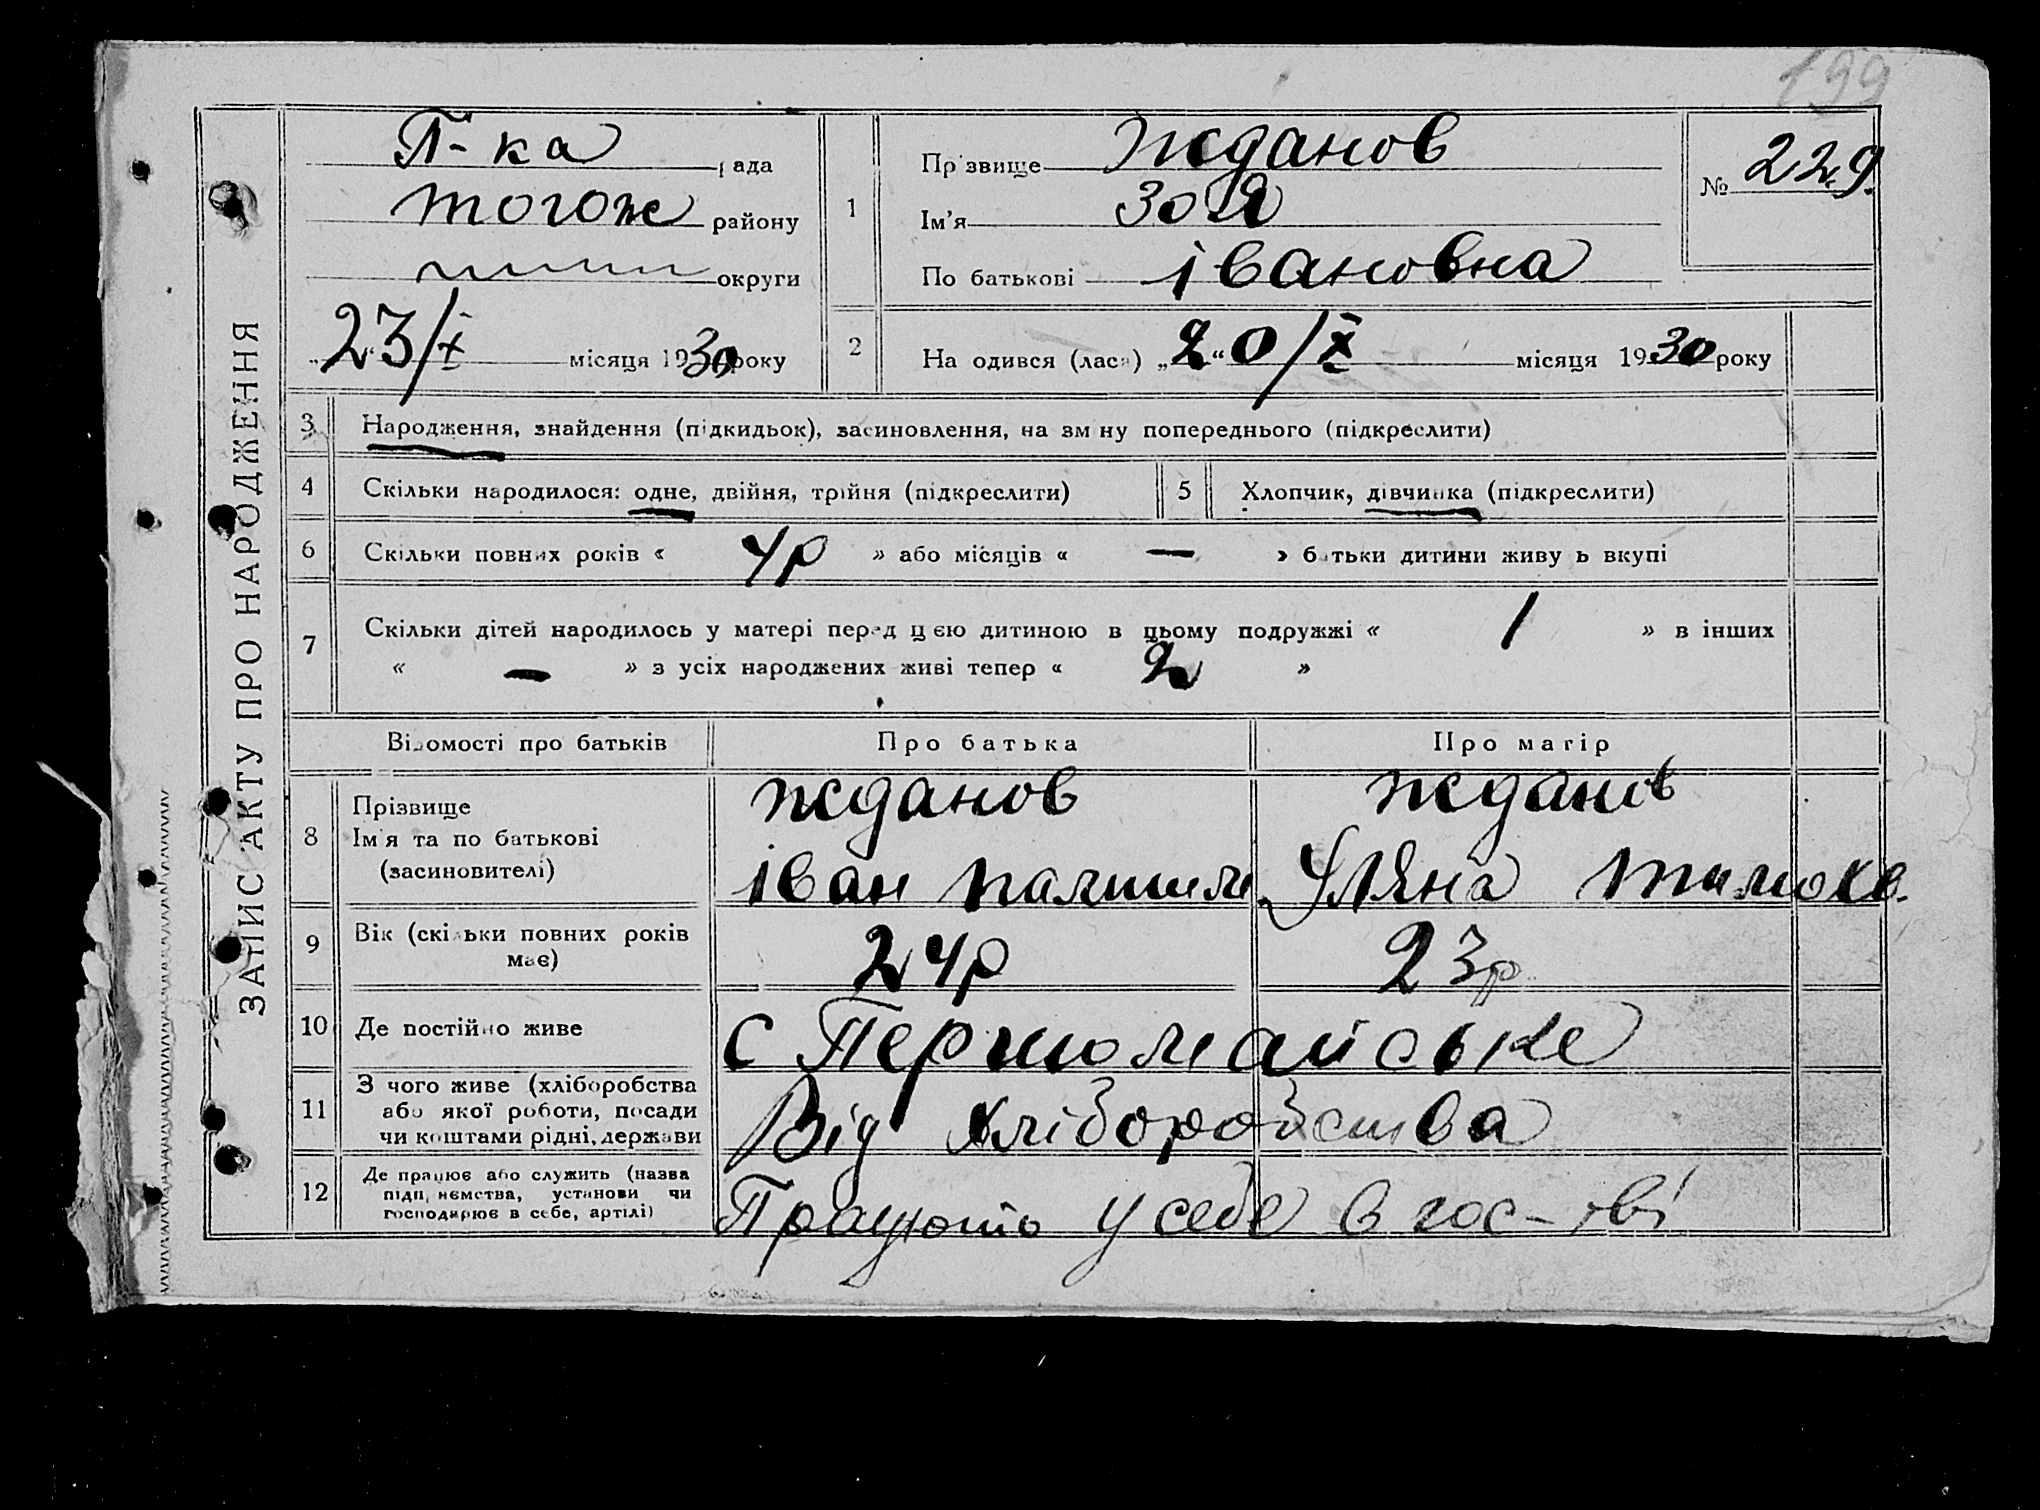 199
ЗАПИС АКТУ ПРО НАРОДЖЕННЯ
П-ка рада
тогож району
округи
„23“/X місяця 1930 року
1
Прізвище Жданов
Ім’я Зоя
По батькові Івановна
№ 229
2
На одився (лася) „20“/X місяця 1930 року
3 Народження, знайдення (підкидьок), засиновлення, на зміну попереднього (підкреслити)
4 Скільки народилося: одне, двійня, трійня (підкреслити)
5 Хлопчик, дівчинка (підкреслити)
6 Скільки повних років « 4р » або місяців « — » батьки дитини живуь вкупі
7 Скільки дітей народилось у матері перед цією дитиною в цьому подружжі « 1 » в інших
« — » з усіх народжених живі тепер « 2 »
Відомості про батьків Про батька Про матір
8 Прізвище
Ім’я та по батькові
(засиновителі)
Жданов
Іван
Жданов
Уляна Тимохв.
9 Вік (скільки повних років
має)
24р
23р
10 Де постійно живе
с Першомайське
11 З чого живе (хліборобства
або якої роботи, посади
чи коштами рідні, держави
Від хліборобства
12 Де працює або служить (назва
підприємства, установи чи
господарює в себе, артілі)
Працюють у себе в гос-тві